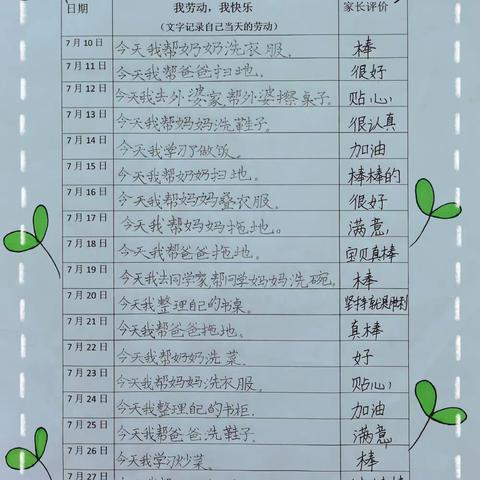 日期 我劳动，我快乐 家长评价
（文字记录自己当天的劳动）
7月10日 今天我帮奶奶洗衣服. 棒
7月11日 今天我帮爸爸扫地. 很好
7月12日 今天我去外婆家,帮外婆擦桌子. 贴心
7月13日 今天我帮妈妈洗鞋子. 很认真
7月14日 今天我学习了做饭。 加油
7月15日 今天我帮奶奶扫地. 棒棒的
7月16日 今天我帮妈妈叠衣服. 很好
7月17日 今天我帮妈妈拖地。 满意
7月18日 今天我帮爸爸拖地. 宝贝真棒
7月19日 今天我去同学家,帮同学妈妈洗碗. 棒
7月20日 今天我整理自己的书桌. 坚持就是胜利
7月21日 今天我帮爸爸拖地. 真棒
7月22日 今天我帮奶奶洗菜. 好
7月23日 今天我帮妈妈洗衣服. 贴心
7月24日 今天我整理自己的书柜. 加油
7月25日 今天我帮爸爸洗鞋子. 满意
7月26日 今天我学习炒菜. 棒
7月27日